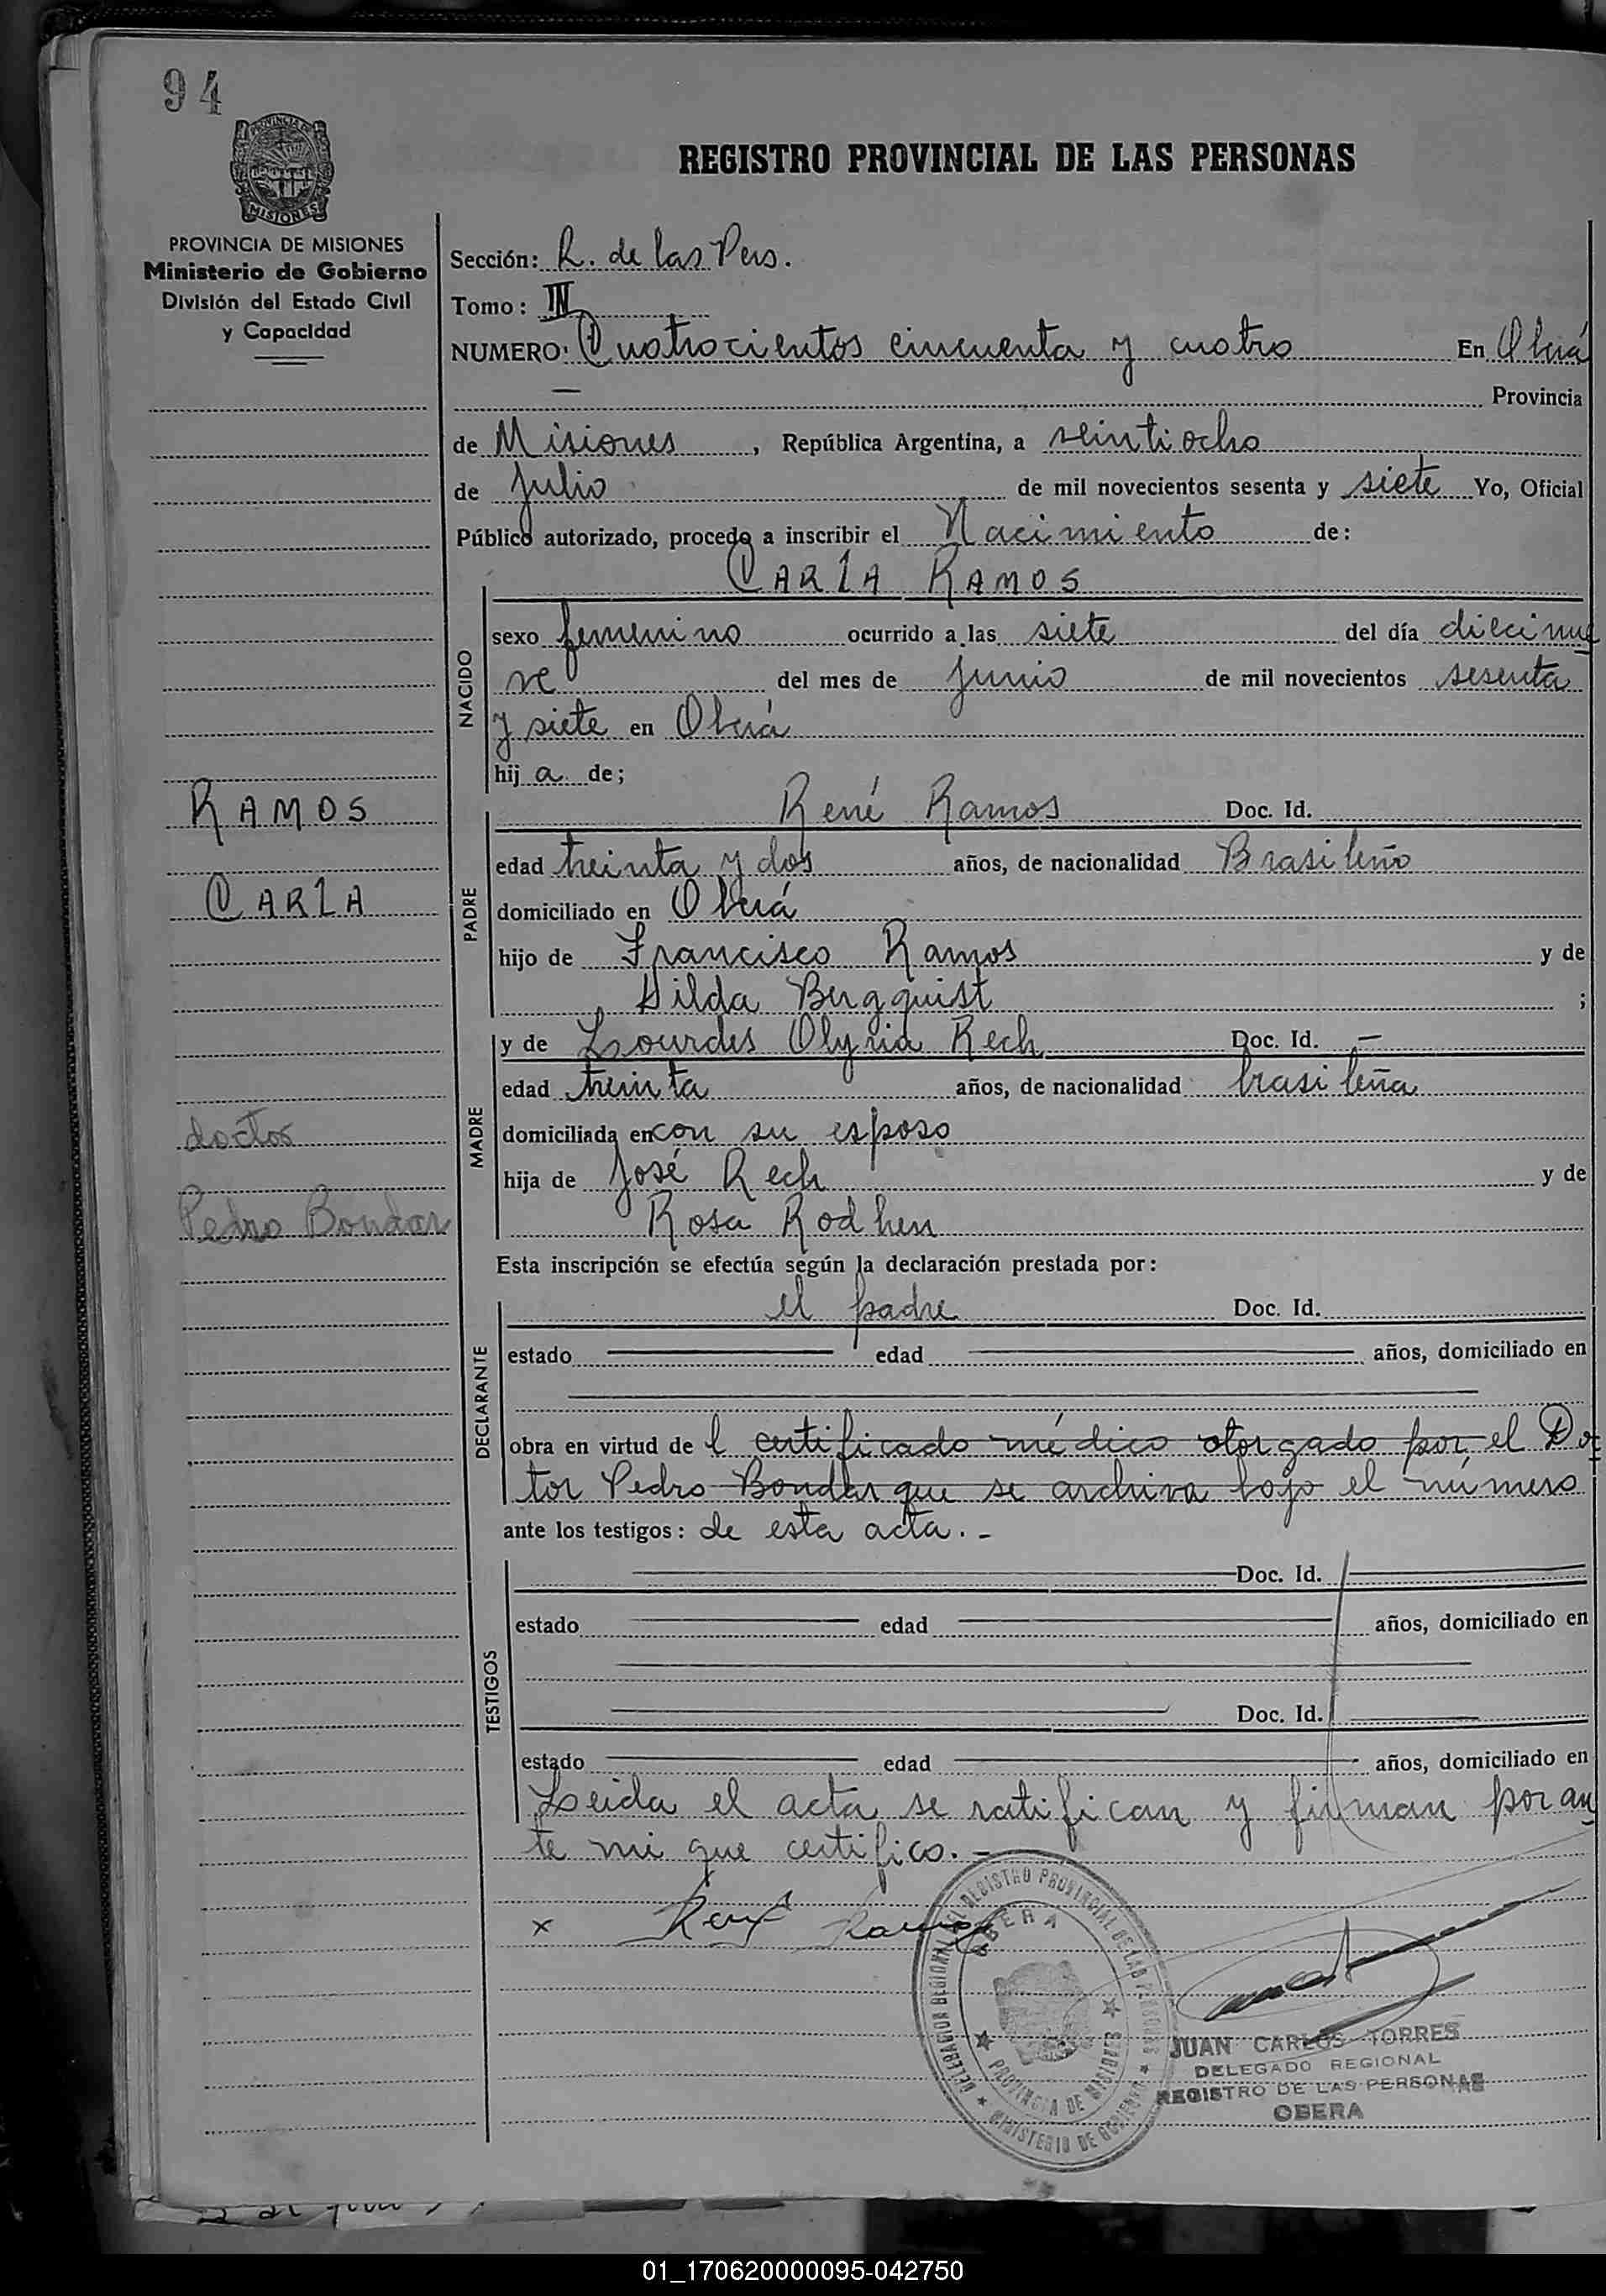 94
PROVINCIA DE
MISIONES
REGISTRO PROVINCIAL DE LAS PERSONAS
PROVINCIA DE MISIONES
Ministerio de Gobierno
División del Estado Civil
y Capacidad
RAMOS
CARLA
doctor
Pedro Bondar
Sección: R. de las Pers.
Tomo: III
NUMERO: Cuatrocientos cincuenta y cuatro En Oberá
— Provincia
de Misiones, República Argentina, a veintiocho
de julio de mil novecientos sesenta y siete Yo, Oficial
Público autorizado, procedo a inscribir el Nacimiento de:
CARLA RAMOS
NACIDO
sexo femenino ocurrido a las siete del día diecinue
ve del mes de junio de mil novecientos sesenta
y siete en Oberá
hij a de;
PADRE
René Ramos Doc. Id.
edad treinta y dos años, de nacionalidad Brasileño
domiciliado en Oberá
hijo de Francisco Ramos y de
Hilda Bergquist ;
MADRE
y de Lourdes Rech Doc. Id. —
edad treinta años, de nacionalidad brasileña
domiciliada en con su esposo
hija de José Rech y de
Rosa Rodhen
Esta inscripción se efectúa según la declaración prestada por:
DECLARANTE
el padre Doc. Id.
estado edad años, domiciliado en
obra en virtud de l certificado médico otorgado por el Doc
tor Pedro Bondar que se archiva bajo el número
ante los testigos: de esta acta. -
TESTIGOS
Doc. Id.
estado edad años, domiciliado en
Doc. Id.
estado edad años, domiciliado en
Leida el acta se ratifican y firman por an
te mi que certifico. -
x René Ramos
DELEGADO REGIONAL DEL REGISTRO PROVINCIAL DE LAS PERSONAS
OBERA
PROVINCIA DE MISIONES
MINISTERIO DE GOBIERNO
JUAN CARLOS TORRES
DELEGADO REGIONAL
REGISTRO DE LAS PERSONAS
OBERA
01_170620000095-042750